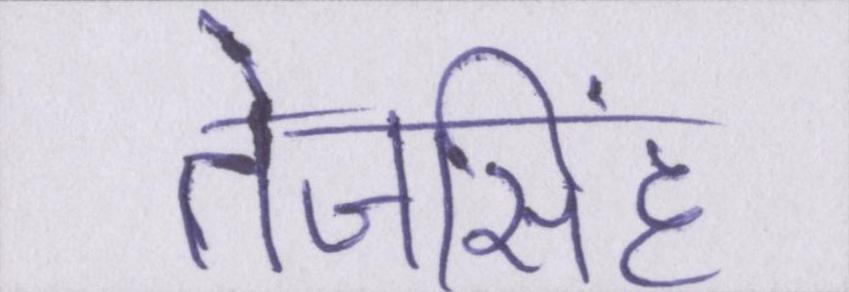 तेजसिंह